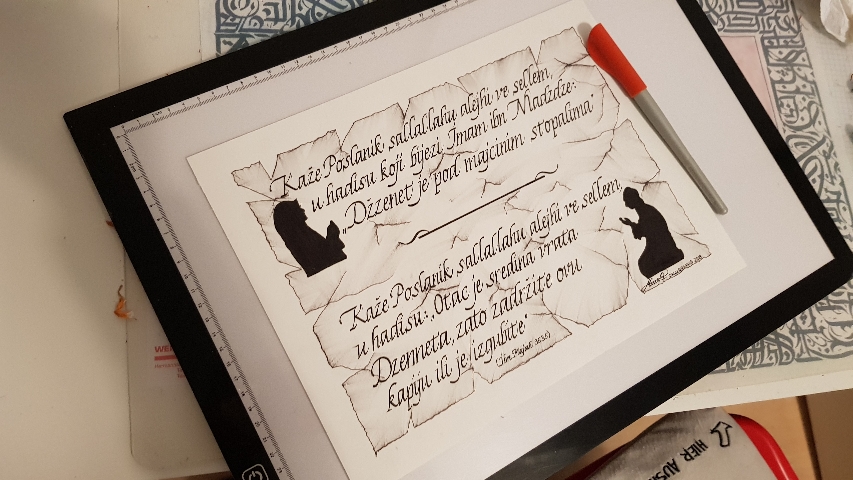 Kaže Poslanik, sallallahu alejhi ve sellem,
u hadisu koji bijezi Imam ibn Madždže:
„Džzenet je pod majcinim stopalima
Kaže Poslanik, sallallahu alejhi ve sellem,
u hadisu: „Otac je sredina vrata
Dzenneta, zato zadržite ovu
kapiju ili je izgubite"
HIER